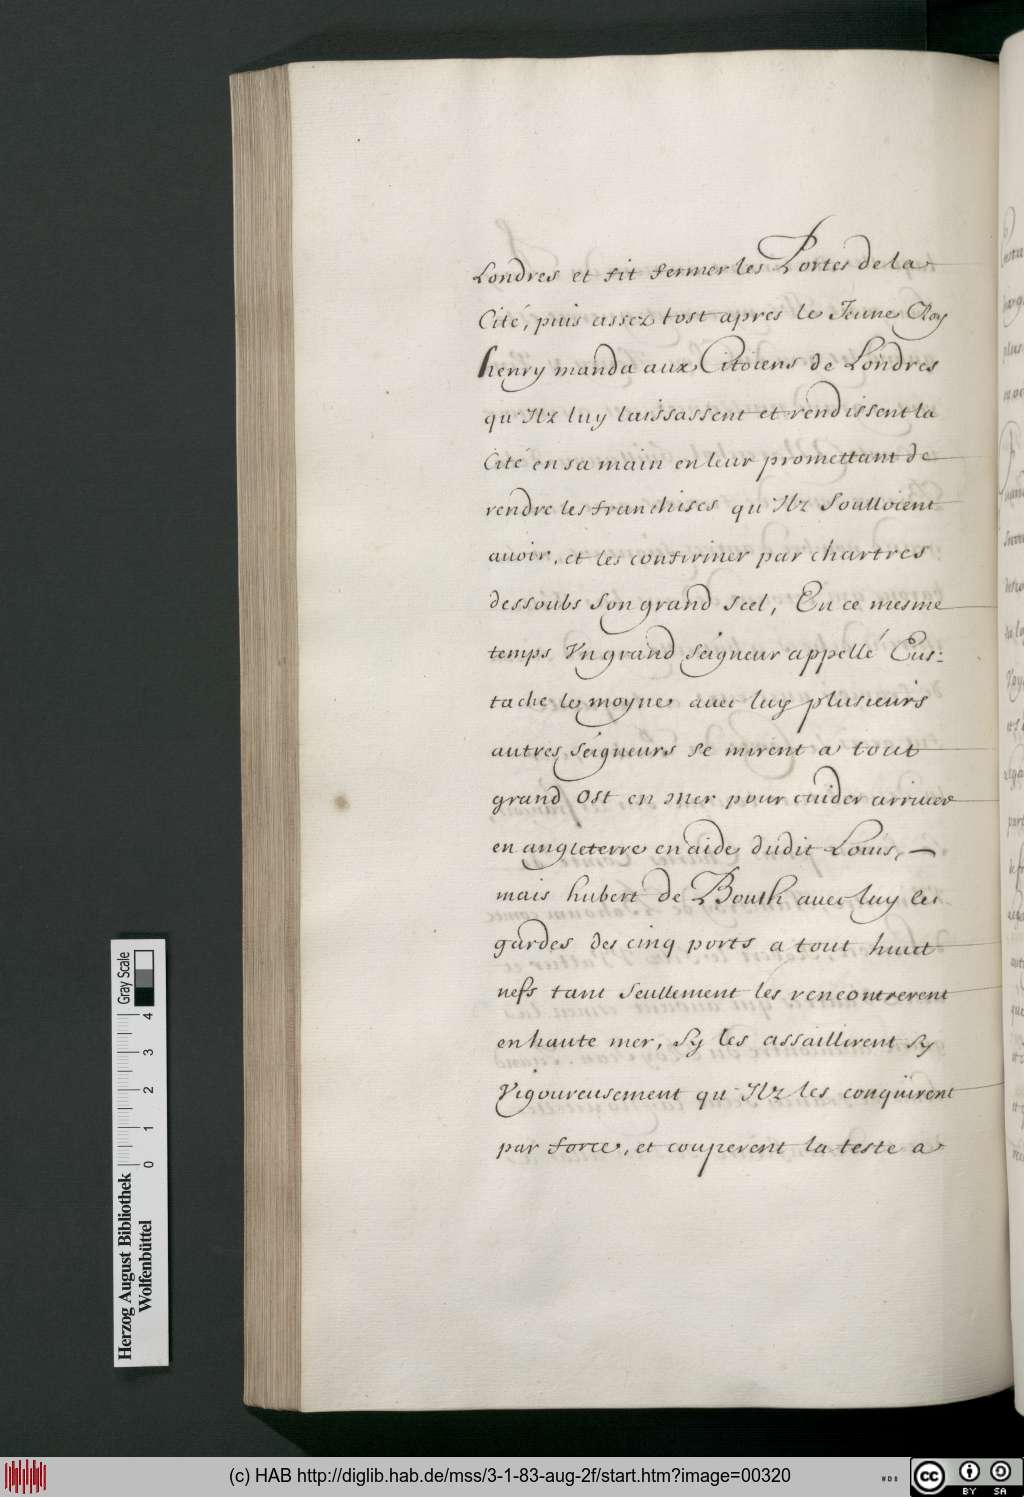 Londres et fit fermer les Portes de la
Cité, puis assez tost apres le Jeune Roy
henry manda aux Citoiens de Londres
qu'Ilz luy laissassent et rendissent la
Cité en sa main en leur promettant de
rendre les franchises qu'Ilz Soulloient
auoir, et les confirmer par chartres
dessoubs Son grand Seel, En ce mesme
temps Vn grand Seigneur appellé Eus:
tache le moyne auec luy plusieurs
autres Seigneurs se mirent a tout
grand Ost en mer pour cuider arriuer
en angleterre en aide dudit Louis, —
mais hubert de Bourh auec luy les
gardes des cinq ports a tout huict
nefs tant Seullement les rencontrerent
en haute mer, Sy les assaillirent sy
Vigoureusement qu'Ilz les conquirent
par force, et couperent la teste a
Gray Scale
4
3
2
1
0
Herzog August Bibliothek
Wolfenbüttel
(c) HAB http://diglib.hab.de/mss/3-1-83-aug-2f/start.htm?image=00320
WDB
cc
BY SA